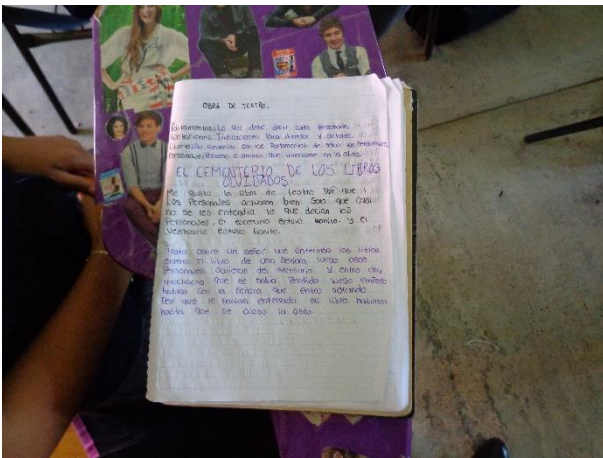 OBRA DE TEATRO.
Parlamentos: Lo que debe decir cada personaje.
Acotaciones: Indicaciones para director y actores.
personaje: Persona o animal que interviene en la obra.
EL CEMENTERIO DE LOS LIBROS
OLVIDADOS
Me gusto la obra de teatro por que
los Personajes actuaron bien Solo que casi
no se les entendia lo que decian los
Personajes. el escenario estuvo bonito. y el
vestuario estuvo bonito.
Trato sobre un señor que enterraba los libros
enterro el libro de una señora, luego esos
Personajes salieron del escenario y entro una
muchacha que se habia perdido luego
hablar con la señora que entro
Por que le habian enterrado su libro hablaron
hasta que se acabo la obra.